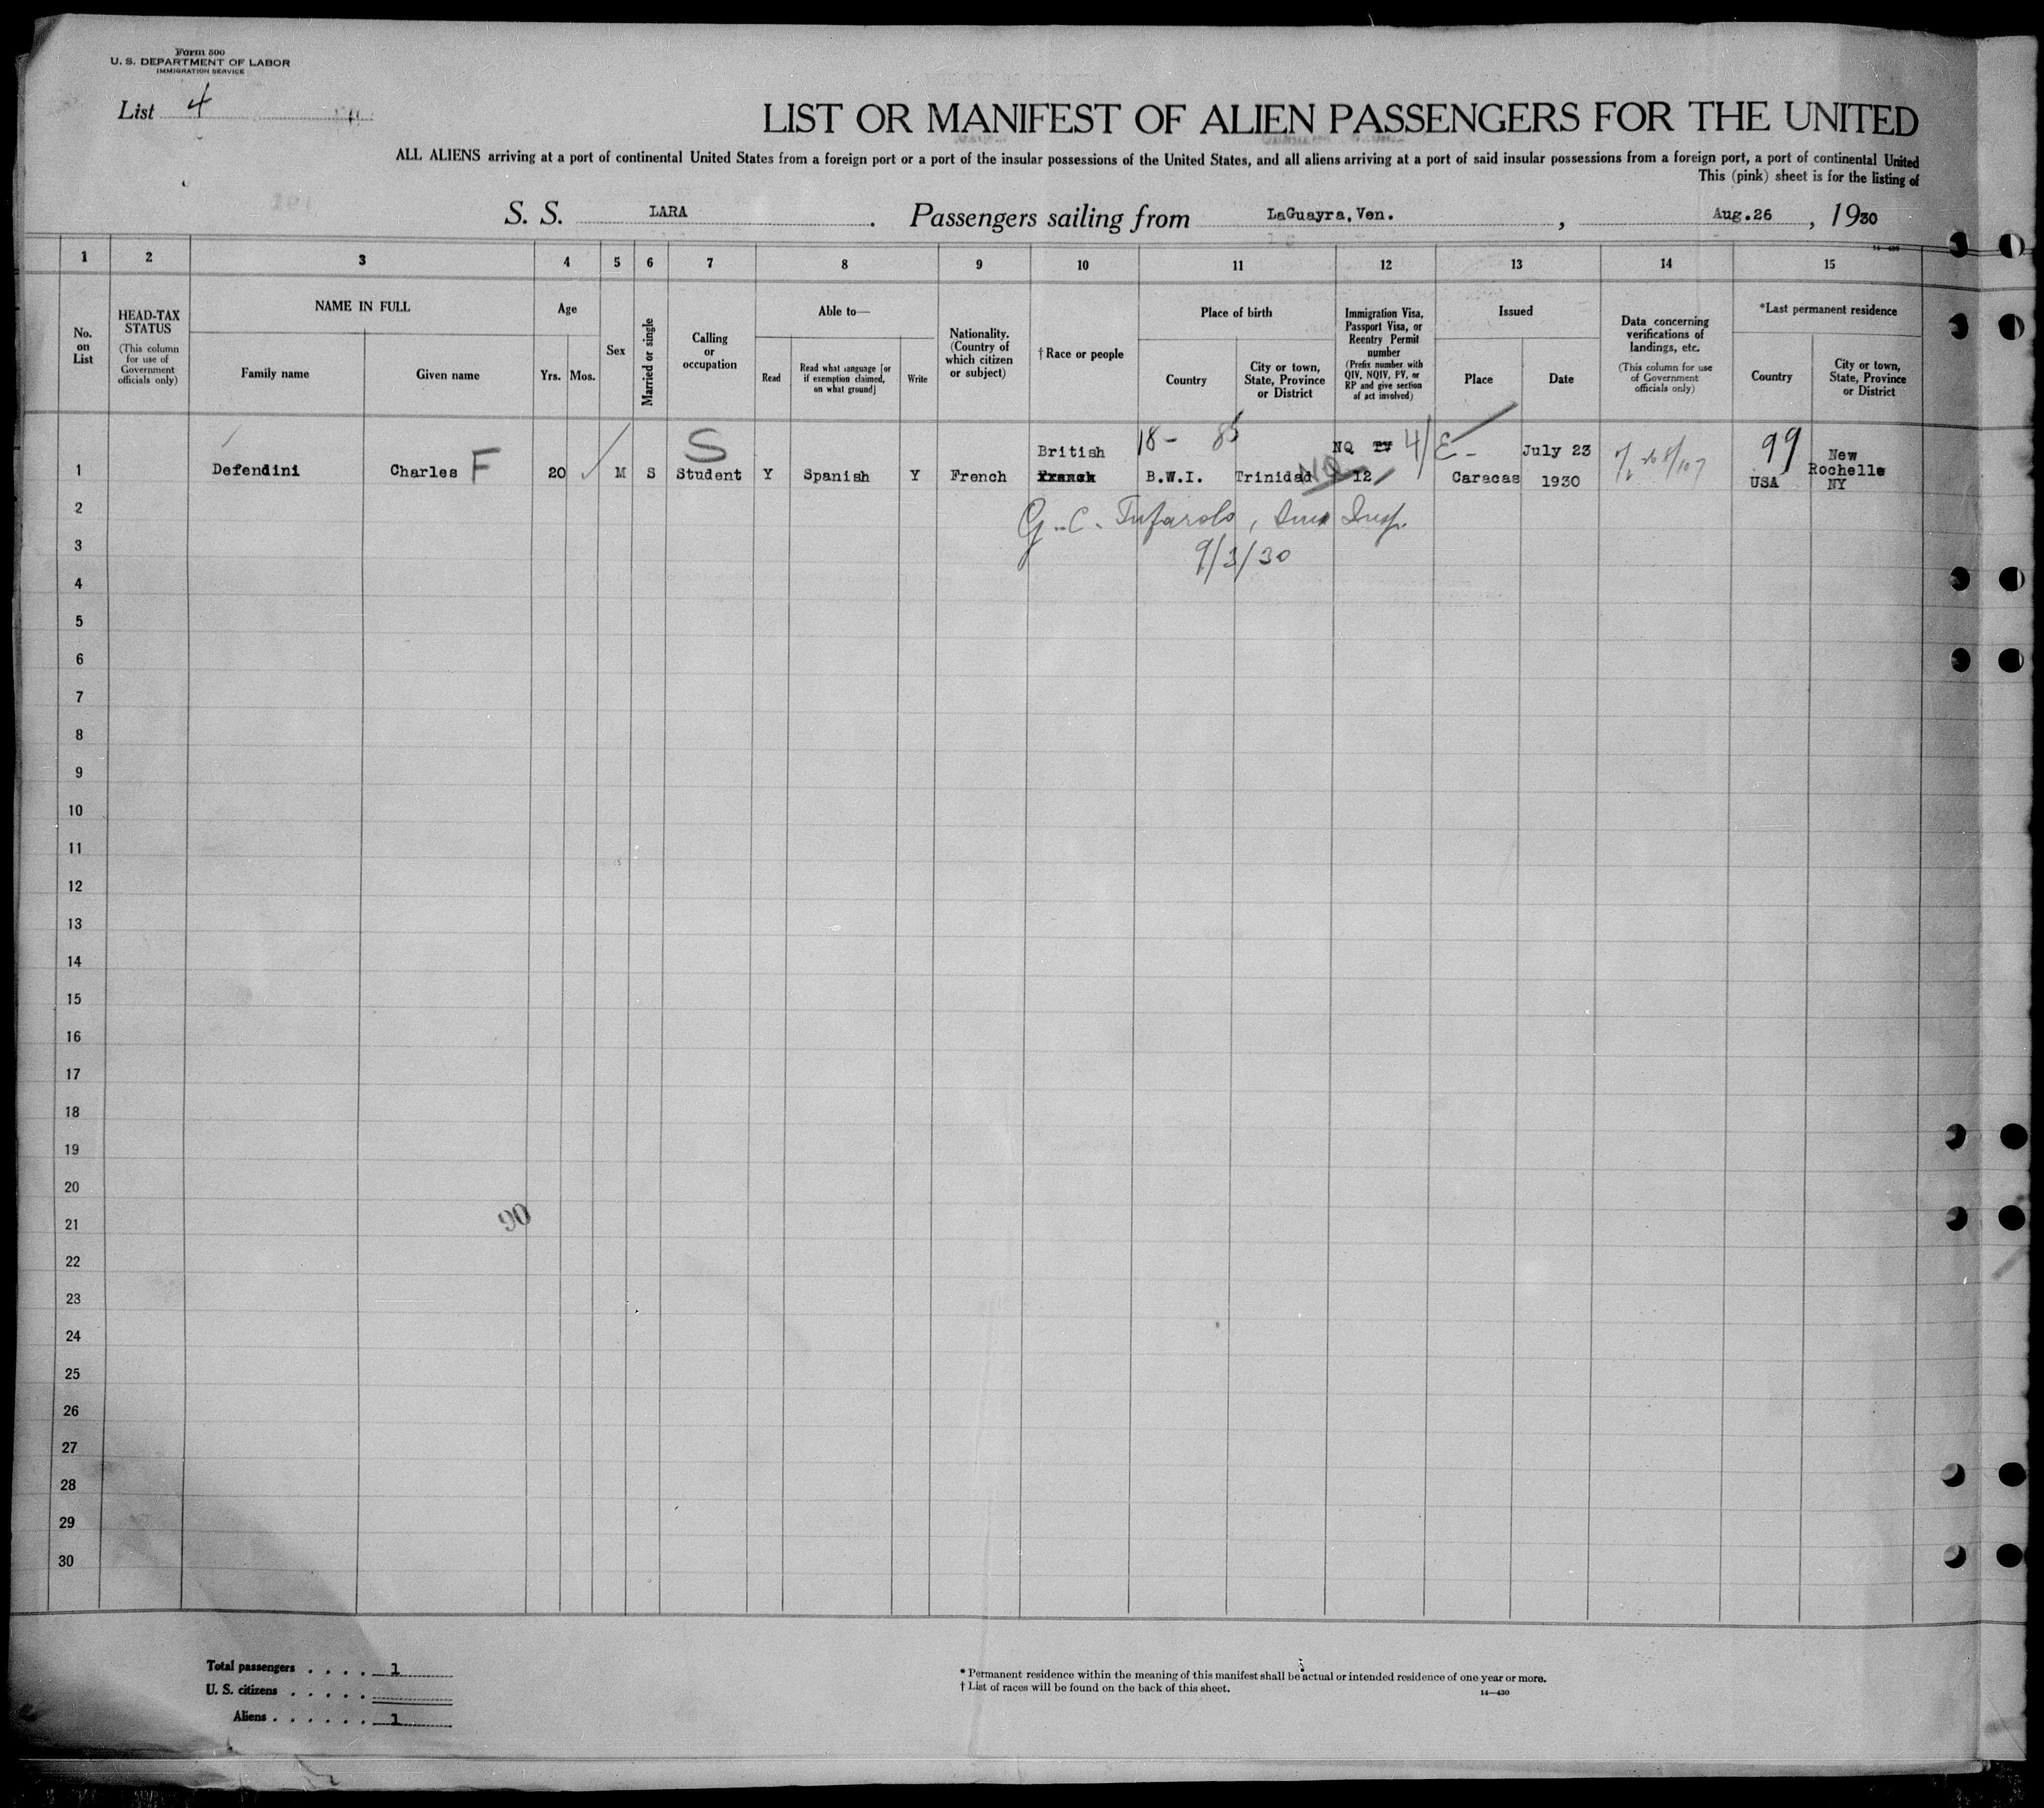 Form 500
U. S. DEPARTMENT OF LABOR
IMMIGRATION SERVICE
List 4
LIST OR MANIFEST OF ALIEN PASSENGERS FOR THE UNITED
ALL ALIENS arriving at a port of continental United States from a foreign port or a port of the insular possessions of the United States, and all aliens arriving at a port of said insular possessions from a foreign port, a port of continental United
This (pink) sheet is for the listing of
S. S. LARA. Passengers sailing from LaGuayra, Ven., Aug. 26, 1930
14-430
1 2 3 4 5 6 7 8 9 10 11 12 13 14 15
No. on List
HEAD-TAX STATUS (This column for use of Government officials only)
NAME IN FULL
Family name
Given name
Age
Yrs. Mos.
Sex
Married or single
Calling or occupation
Able to—
Read
Read what language [or if exemption claimed, on what ground]
Write
Nationality. (Country of which citizen or subject)
†Race or people
Place of birth
Country
City or town, State, Province or District
Immigration Visa, Passport Visa, or Reentry Permit number (Prefix number with QIV, NQIV, PV, or RP and give section of act involved)
Issued
Place
Date
Data concerning verifications of landings, etc. (This column for use of Government officials only)
*Last permanent residence
Country
City or town, State, Province or District
S British 18- 85 NQ PV 4/E- July 23 99 New
1 Defendini Charles F 20 M S Student Y Spanish Y French French B.W.I. Trinidad NQ 12 Caracas 1930 USA Rochelle
NY
2
G. C. Tufarolo, Imm Insp.
3
9/3/30
4
5
6
7
8
9
10
11
12
13
14
15
16
17
18
19
20
21
90
22
23
24
25
26
27
28
29
30
Total passengers . . . . 1
U. S. citizens . . . . .
Aliens . . . . . . 1
* Permanent residence within the meaning of this manifest shall be actual or intended residence of one year or more.
† List of races will be found on the back of this sheet.
14—430